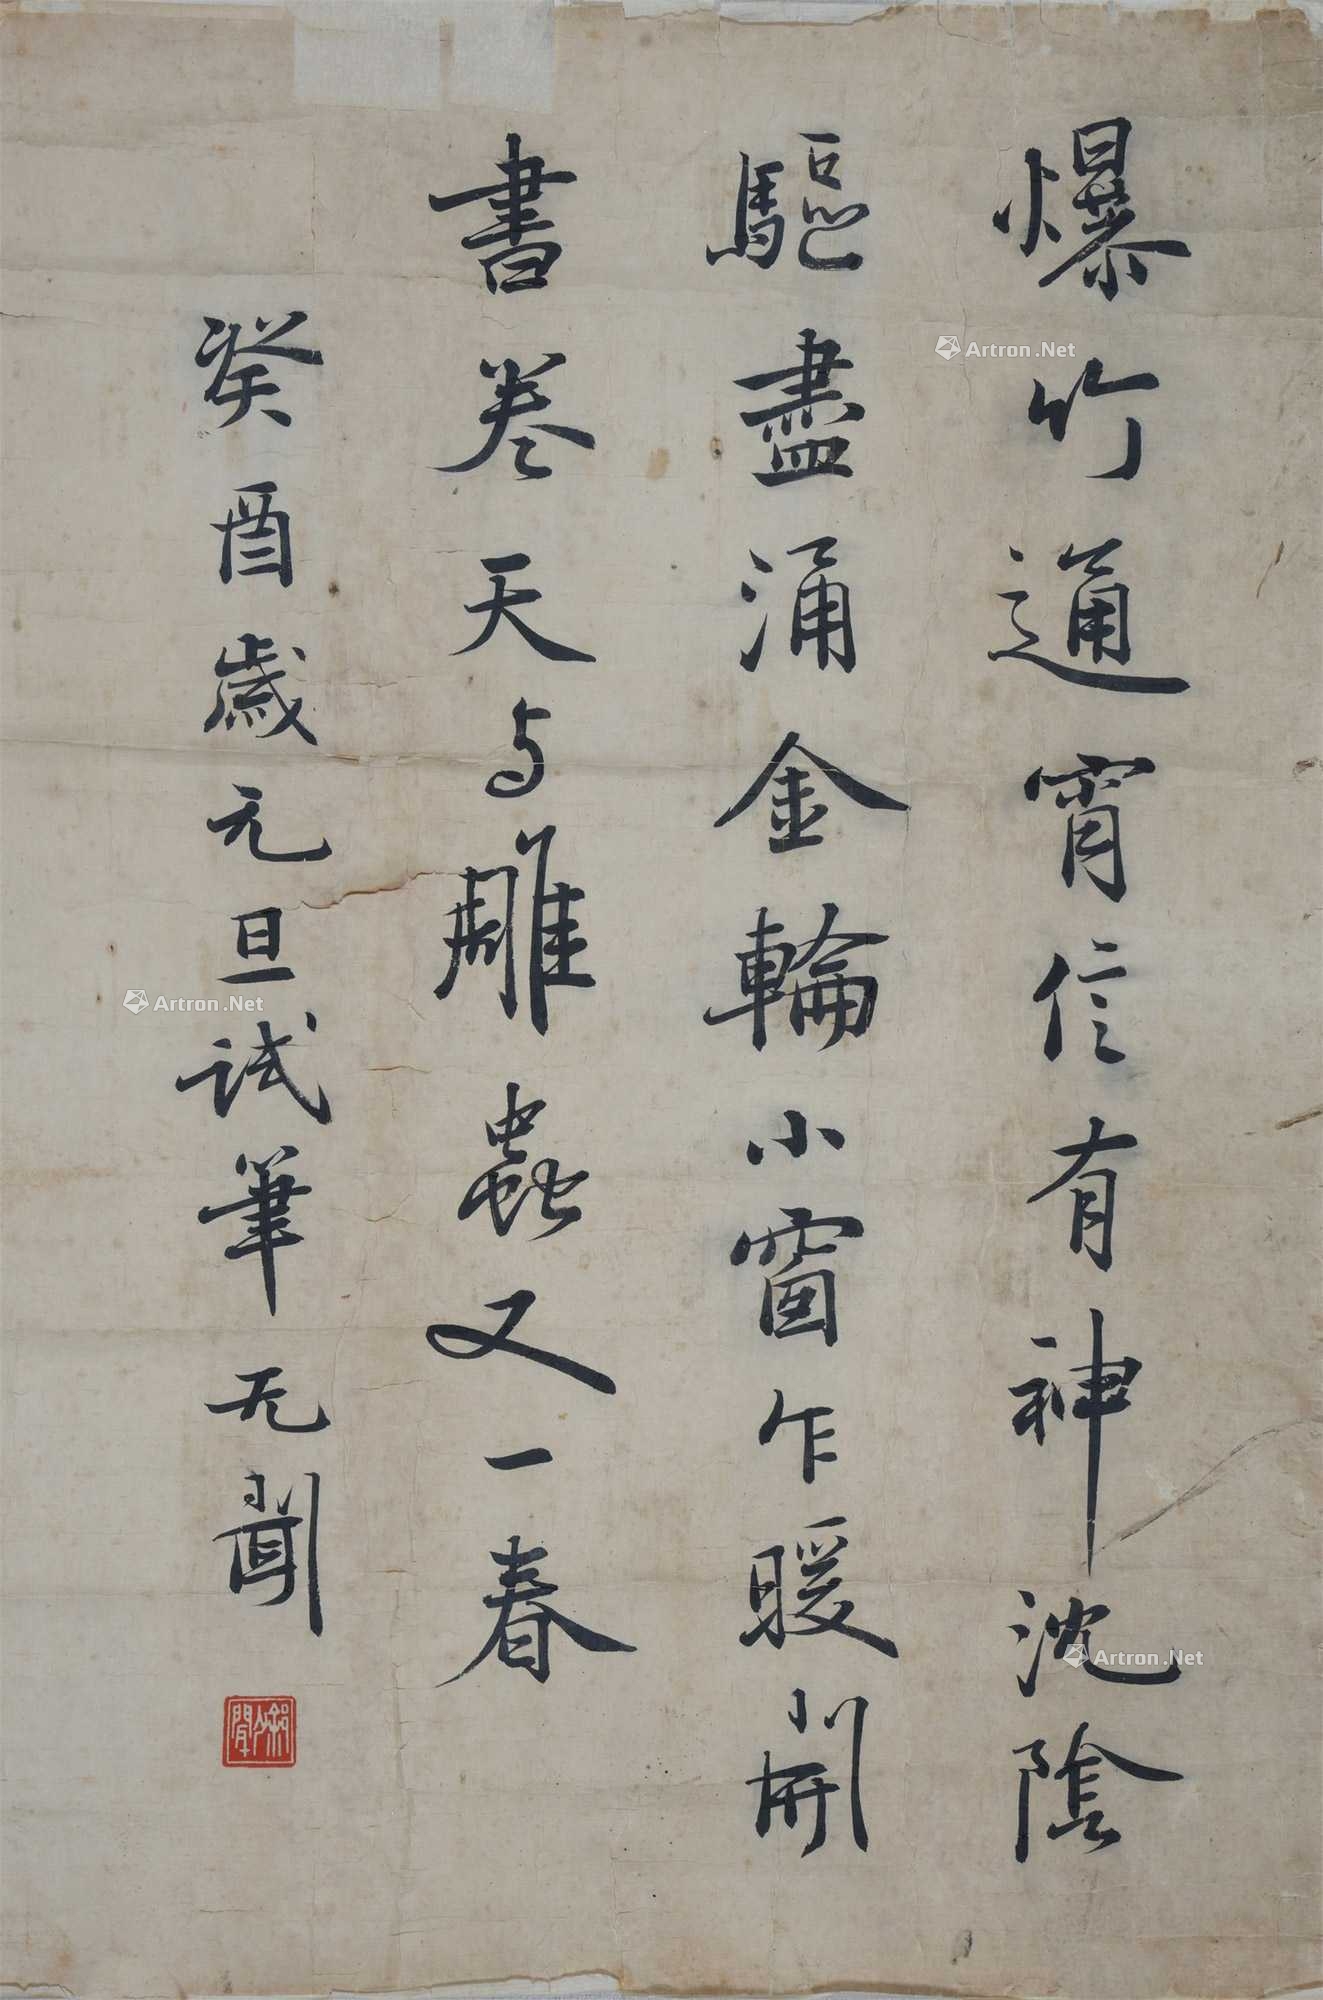 爆竹通宵信有神沈陰
驅盡涌金輪小窗乍暖開
書卷天与雕蟲又一春
癸酉歲元旦試筆无聞
Artron.Net
Artron.Net
Artron.Net